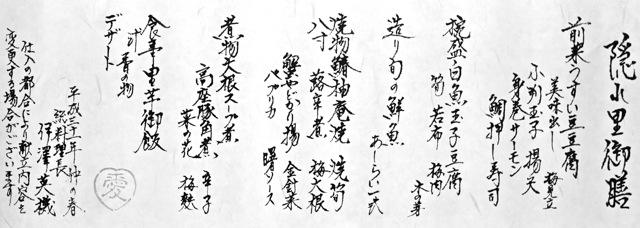 隠れ里御膳
前菜 うすい豆豆腐
美味出し 梅見立
小判玉子 揚天
手巻サーモン
鯛押し寿司
椀盛 白魚玉子豆腐
筍 若布 梅肉
木の芽
造り 旬の鮮魚
あしらい一式
焼物 鰆柚庵焼 焼筍
八寸 蕗辛煮 梅大根
蟹やじかり揚 金針菜
パプリカ ソース
煮物 大根スープ煮
高座豚角煮 辛子
菜の花 梅麩
食事 白芋御飯
汁 香の物
デザート
平成三十一年 仲の春
総料理長
伊澤英機
仕入の都合により献立内容を
変更する場合がございます
愛